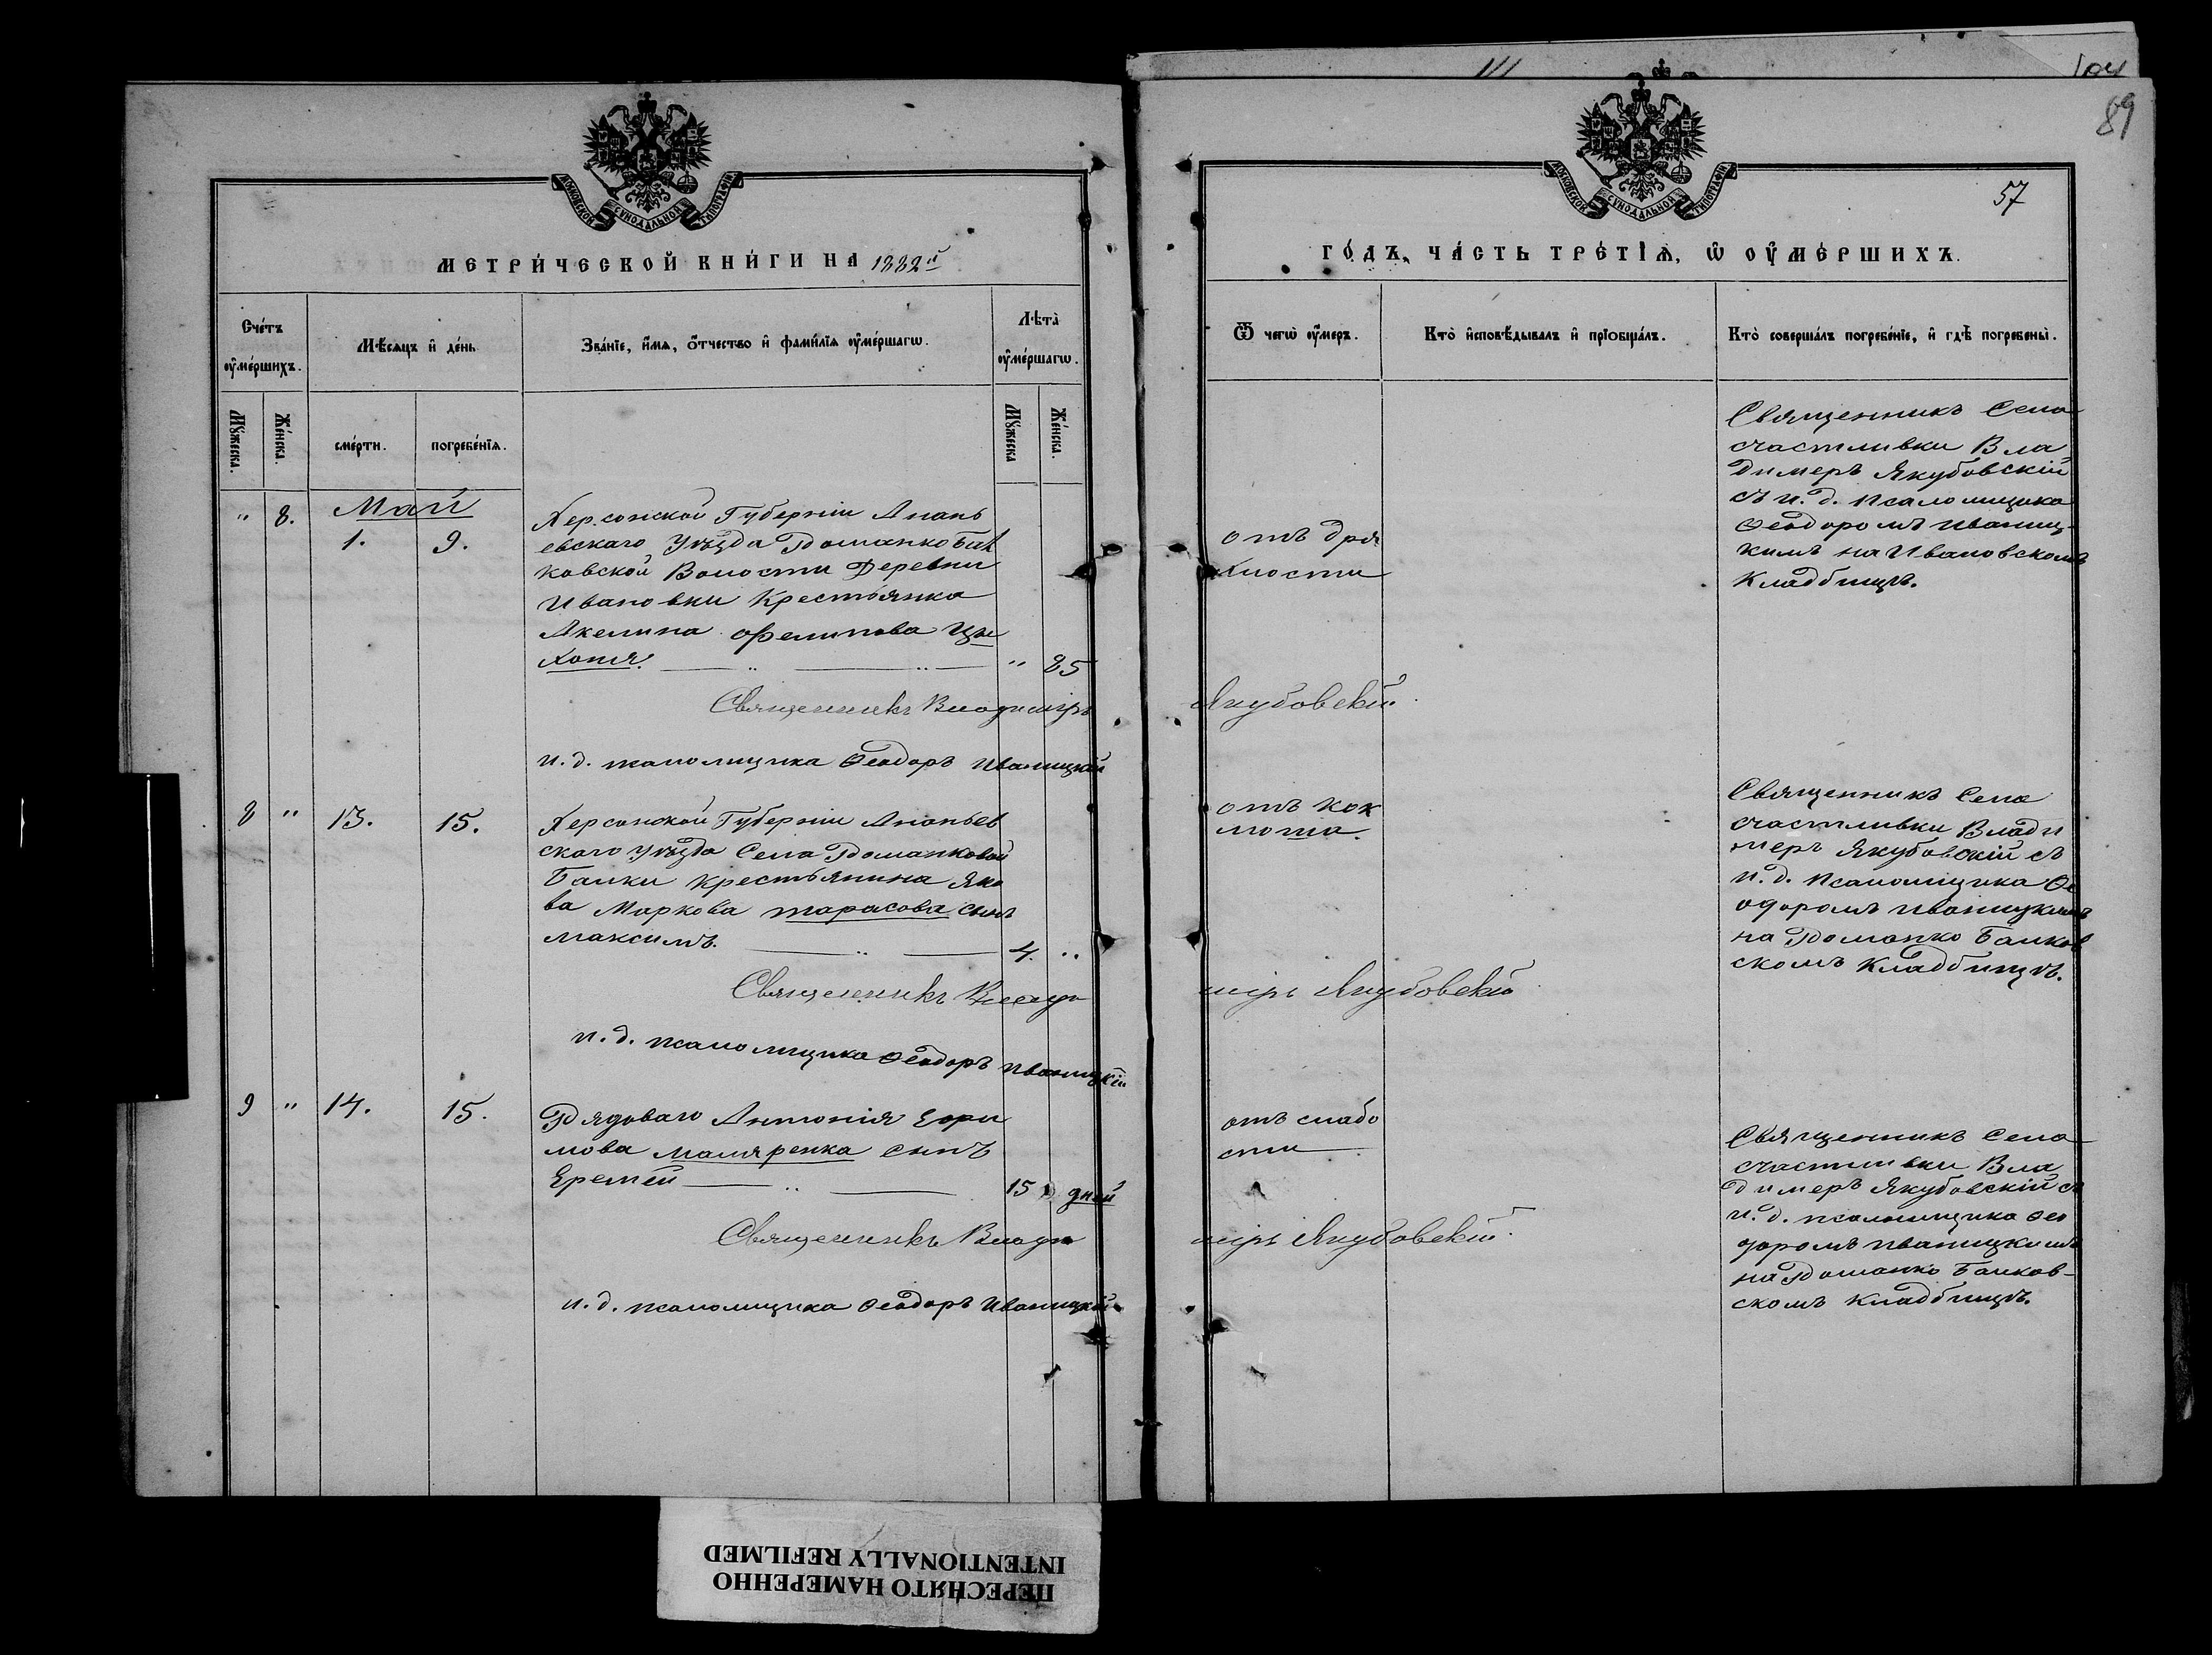 МОСКОВСКОЙ СѴНОДАЛЬНОЙ ТИПОГРАФІИ
МЕТРИ́ЧЕСКОЙ КНИ́ГИ НА 1882й
Сче́тъ ᲂу҆ме́ршихъ.
Мѣ́сяцъ и҆ де́нь
Зва́нїе, и҆́мѧ, ѻ҆́тчество и҆ фами́лїѧ ᲂу҆ме́ршагѡ.
Лѣ́та ᲂу҆ме́ршагѡ.
Мꙋ́жеска.
Же́нска.
сме́рти.
погребе́нїѧ.
Мꙋ́жеска
Же́нска.
Май
" 8. 1. 9.
Херсонской Губерніи Анань
евскаго Уѣзда
ковской Волости Деревни
Ивановки Крестьянка
Акелина Филипова Цы
хоня. " 85
Священникъ Владиміръ Якубовскій.
и. д. псаломщика Ѳеодоръ Иваницкій
8 " 13. 15.
Херсонской Губерніи Ананьев
скаго Уѣзда Села Романковой
Балки Крестьянина Яко
ва Маркова Тарасова сынъ
Максимъ. 4. "
Священникъ Владиміръ Якубовскій
и. д. псаломщика Ѳеодоръ Иваницкій
9 " 14. 15.
Рядоваго Антонія Ефи
мова Маляренка сынъ
Еремей 15 дней
Священникъ Владиміръ Якубовскій.
и. д. псаломщика Ѳеодоръ Иваницкій
89
57
МОСКОВСКОЙ СѴНОДАЛЬНОЙ ТИПОГРАФІИ
ГО́ДЪ, ЧА́СТЬ ТРЕ́ТІѦ, Ѡ҆ ᲂУ҆МЕ́РШИХЪ.
Ѿ чегѡ̀ ᲂу҆́меръ.
Кто̀ и҆сповѣ́дывалъ и҆ прїѻбща́лъ.
Кто̀ соверша́лъ погребе́нїе, и҆ гдѣ̀ погребены̀.
отъ дря
хлости
Священникъ Села
Счастливки Вла
димеръ Якубовскій
съ и. д. Псаломщика
Ѳеодоромъ Иваниц-
кимъ на Ивановскомъ
Кладбищѣ.
отъ кок
люша.
Священникъ Села
Счастливки Влади
меръ Якубовскій съ
и. д. Псаломщика Ѳе
одоромъ Иваницкимъ
на Романко Балков
скомъ Кладбищѣ.
отъ слабо
сти
Священникъ Села
Счастливки Вла
димеръ Якубовскій съ
и. д. псаломщика Ѳео
доромъ Иваницкимъ
на Романко Балков-
скомъ Кладбищѣ.
ПЕРЕСНЯТО НАМЕРЕННО
INTENTIONALLY REFILMED